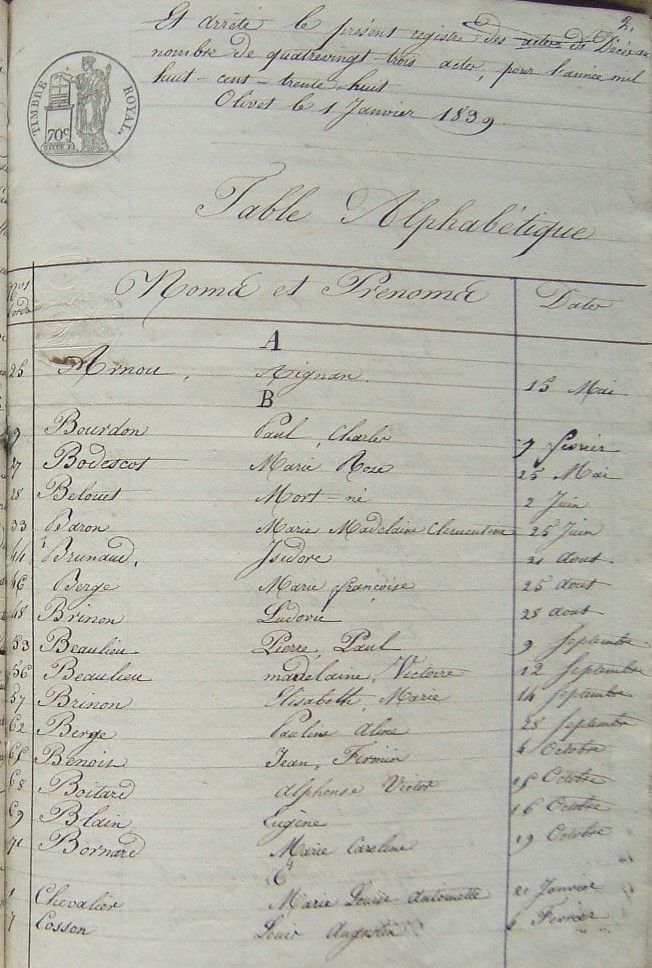 2.
Et arrêté le présent registre des actes de Décès au
nombre de quatrevingt-trois actes, pour l'année mil
huit-cent-trente-huit.
Olivet le 1 Janvier 1839
TIMBRE ROYAL.
70c
Table Alphabétique
Nos Noms et Prenoms Dates
A
25 Arnou, Aignan. 15 Mai
B
9 Bourdon Paul, Charles 9 fevrier
27 Bodescot Marie Rose 25 Mai
28 Belouet Mort-né 2 Juin
33 Baron Marie Madelaine Clementine 25 Juin
44 Brunaud, Isidore 21 aout
46 Berge Marie françoise 25 aout
48 Brinon Ludovic 28 aout
53 Beaulieu Pierre, Paul 9 Septembre
56 Beaulieu madelaine, Victoire 12 Septembre
57 Brinon Elisabeth, Marie 14 Septembre
62 Berge Pauline Aline 28 Septembre
65 Benoist Jean, Firmin 4 Octobre
68 Boitard alphonse Victor 15 Octobre
69 Blain Eugène 16 Octobre
71 Bornard Marie Caroline 19 Octobre
C
1 Chevalier Marie Louise Antoinette Janvier
7 Cosson Louis Augustin Fevrier